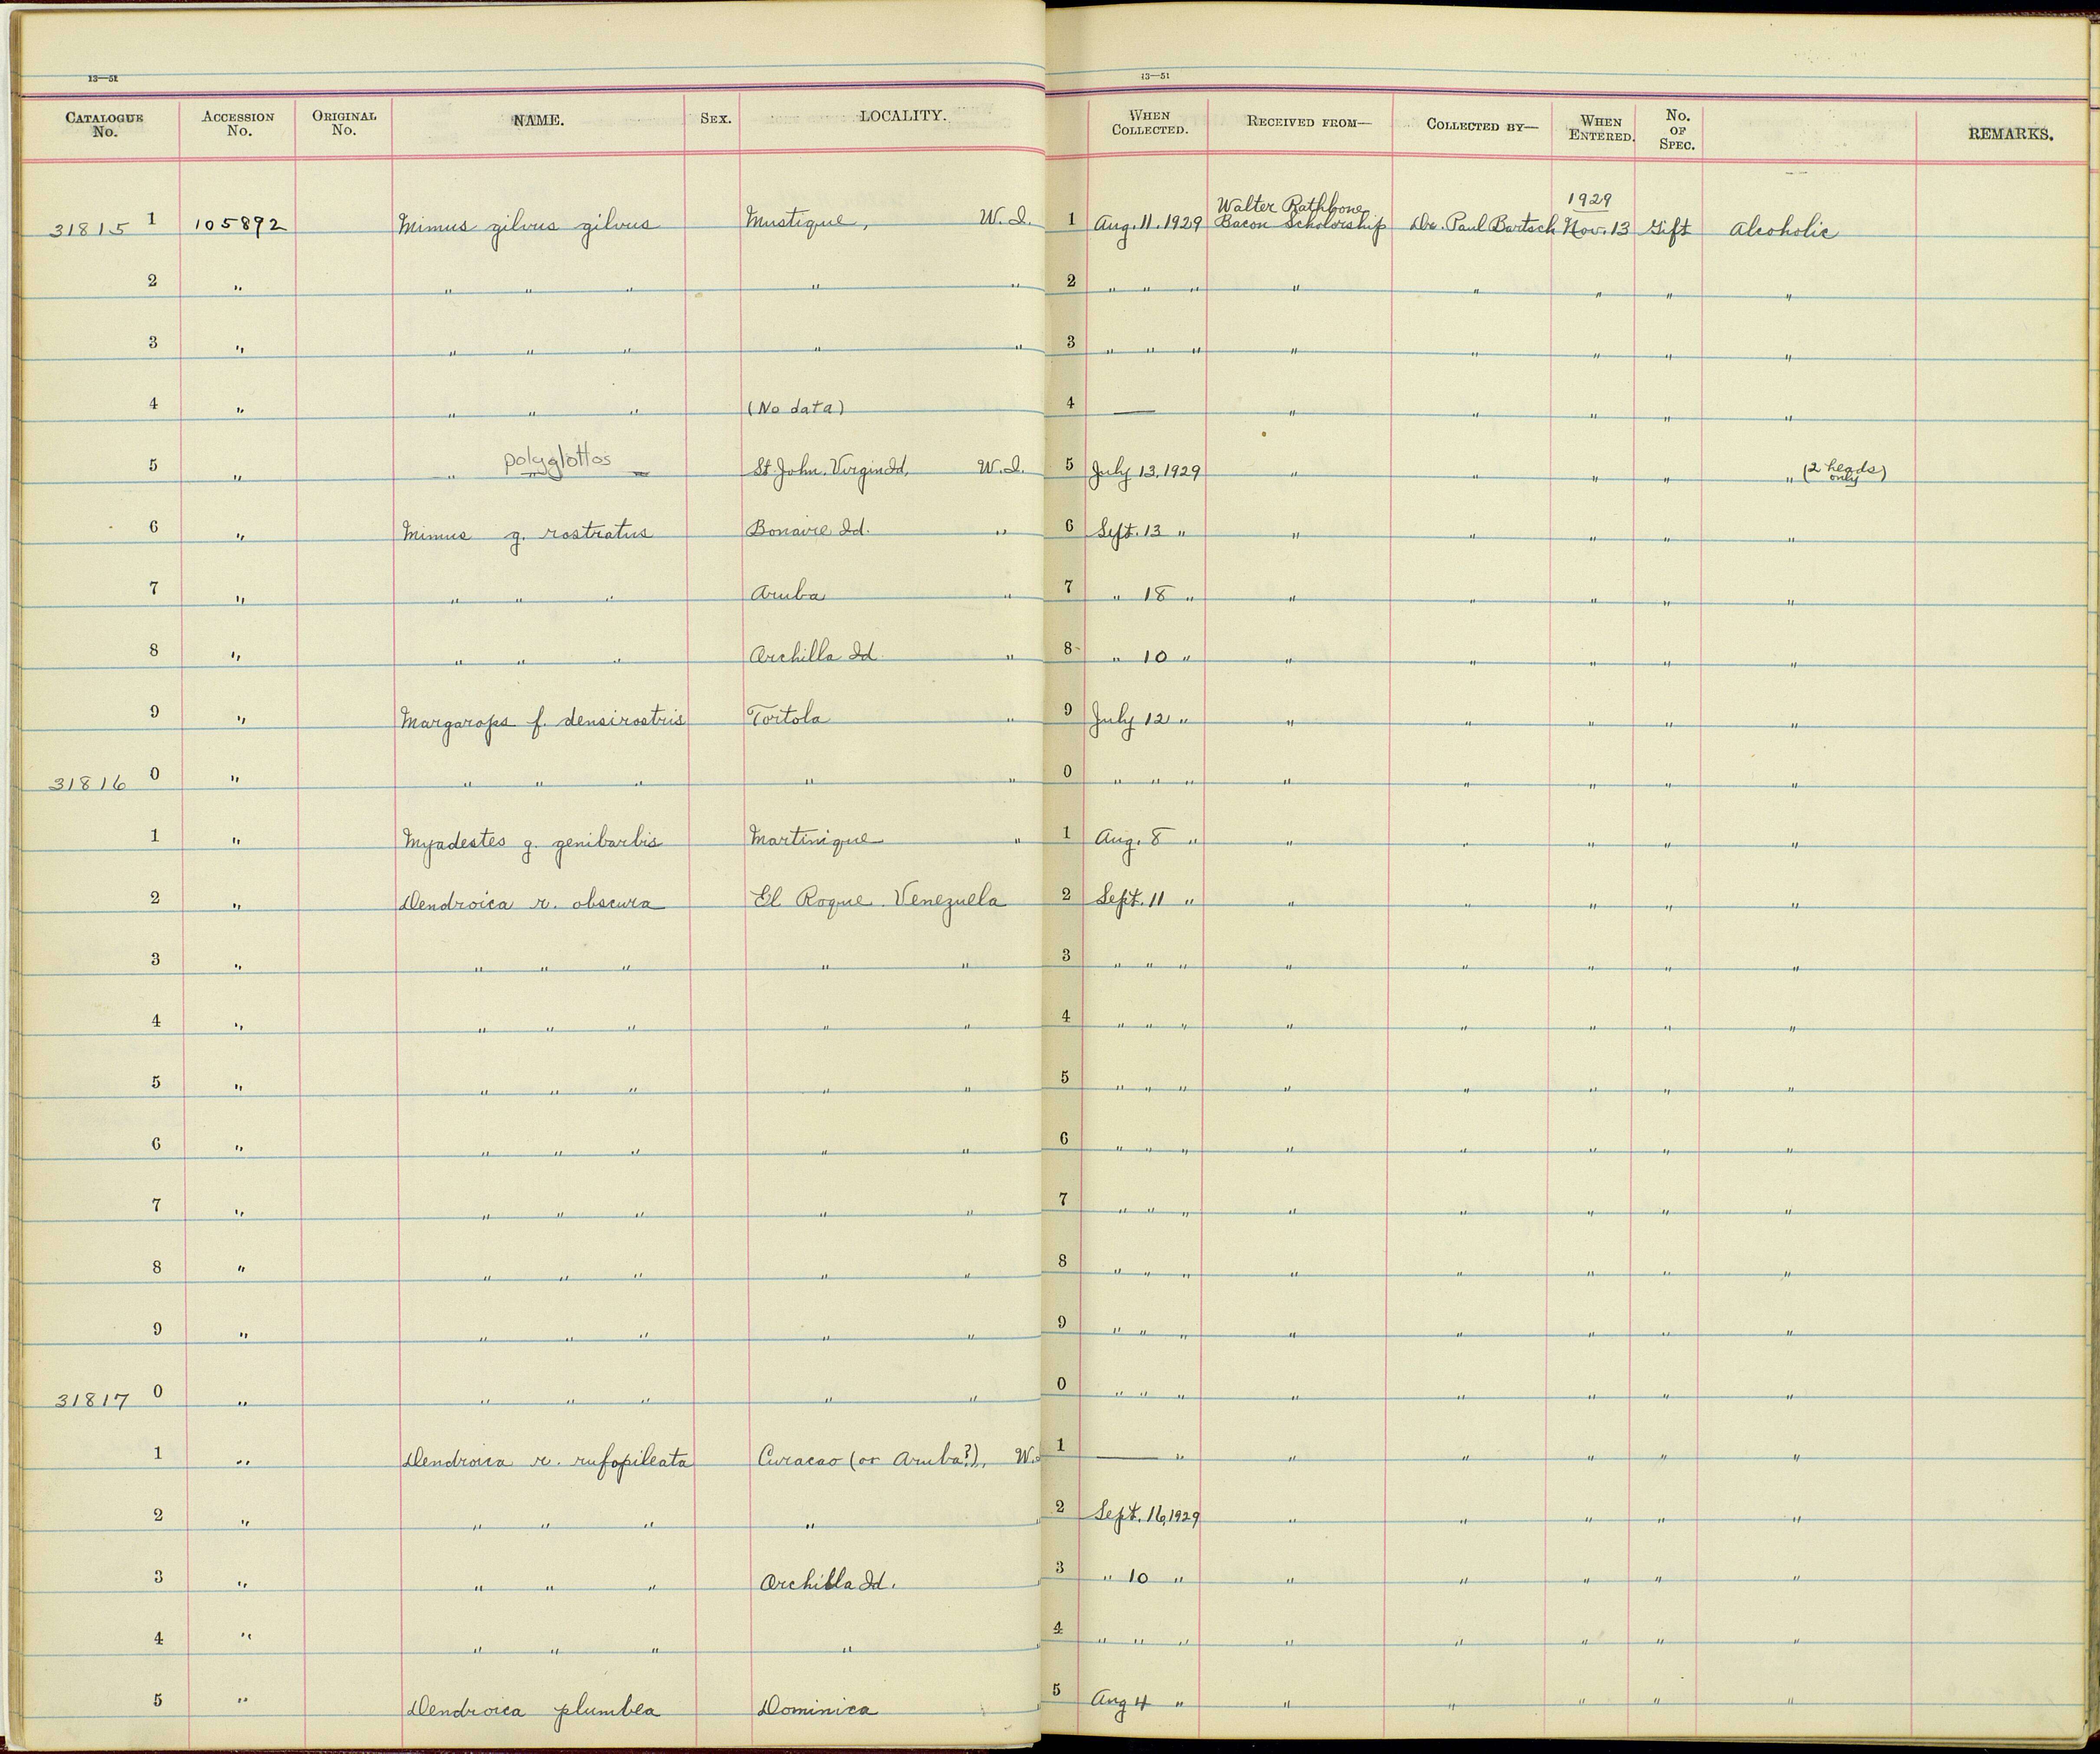 13—51 13—51
CATALOGUE No. ACCESSION No. ORIGINAL No. NAME. SEX. LOCALITY. WHEN COLLECTED. RECEIVED FROM— COLLECTED BY— WHEN ENTERED. No. OF SPEC. REMARKS.
31815 1 105892 Mimus gilvus gilvus Mustique, W.I. 1 Aug. 11. 1929 Walter Rathbone Bacon Scholarship Dr. Paul Bartsch 1929 Nov. 13 Gift Alcoholic
2 " " " " " " 2 " " " " " " " "
3 " " " " " " 3 " " " " " " " "
4 " " " " (No data) 4 — " " " " "
5 " " polyglottos St. John. Virgin Id, W.I. 5 July 13, 1929 " " " " " (2 heads only)
6 " Mimus g. rostratus Bonaire Id. " 6 Sept. 13 " " " " " "
7 " " " " Aruba " 7 " 18 " " " " " "
8 " " " " Orchilla Id " 8 " 10 " " " " " "
9 " Margarops f. densirostris Tortola " 9 July 12 " " " " " "
31816 0 " " " " " " 0 " " " " " " " "
1 " Myadestes g. genibarbis Martinique " 1 Aug. 8 " " " " " "
2 " Dendroica r. obscura El Roque. Venezuela 2 Sept. 11 " " " " " "
3 " " " " " " 3 " " " " " " " "
4 " " " " " " 4 " " " " " " " "
5 " " " " " " 5 " " " " " " " "
6 " " " " " " 6 " " " " " " " "
7 " " " " " " 7 " " " " " " " "
8 " " " " " " 8 " " " " " " " "
9 " " " " " " 9 " " " " " " " "
31817 0 " " " " " " 0 " " " " " " " "
1 " Dendroica r. rufopileata Curacao (or Aruba?), W. 1 — " " " " " "
2 " " " " " 2 Sept. 16, 1929 " " " " "
3 " " " " Orchilla Id. 3 " 10 " " " " " "
4 " " " " " 4 " " " " " " " "
5 " Dendroica plumbea Dominica 5 Aug 4 " " " " " "